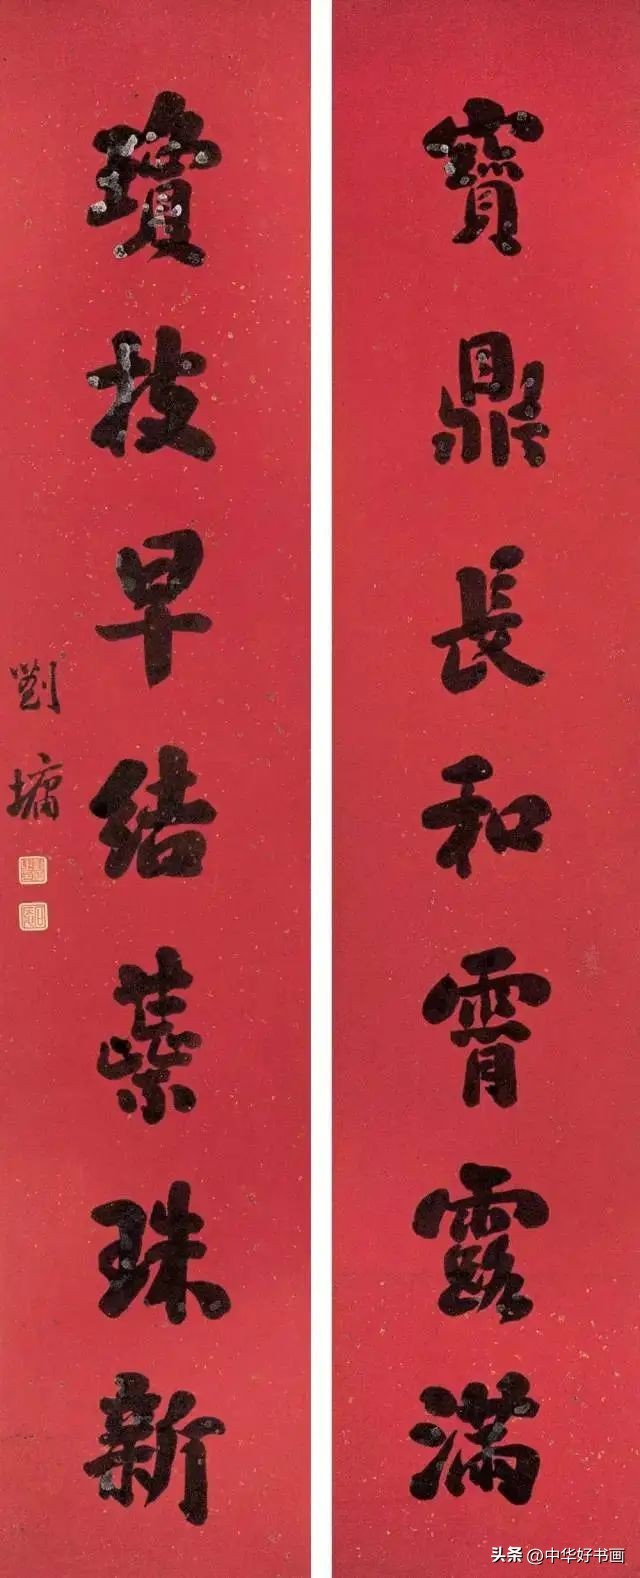 寶鼎長和霄露滿
瓊枝早結蘂珠新
劉墉
头条 @中华好书画